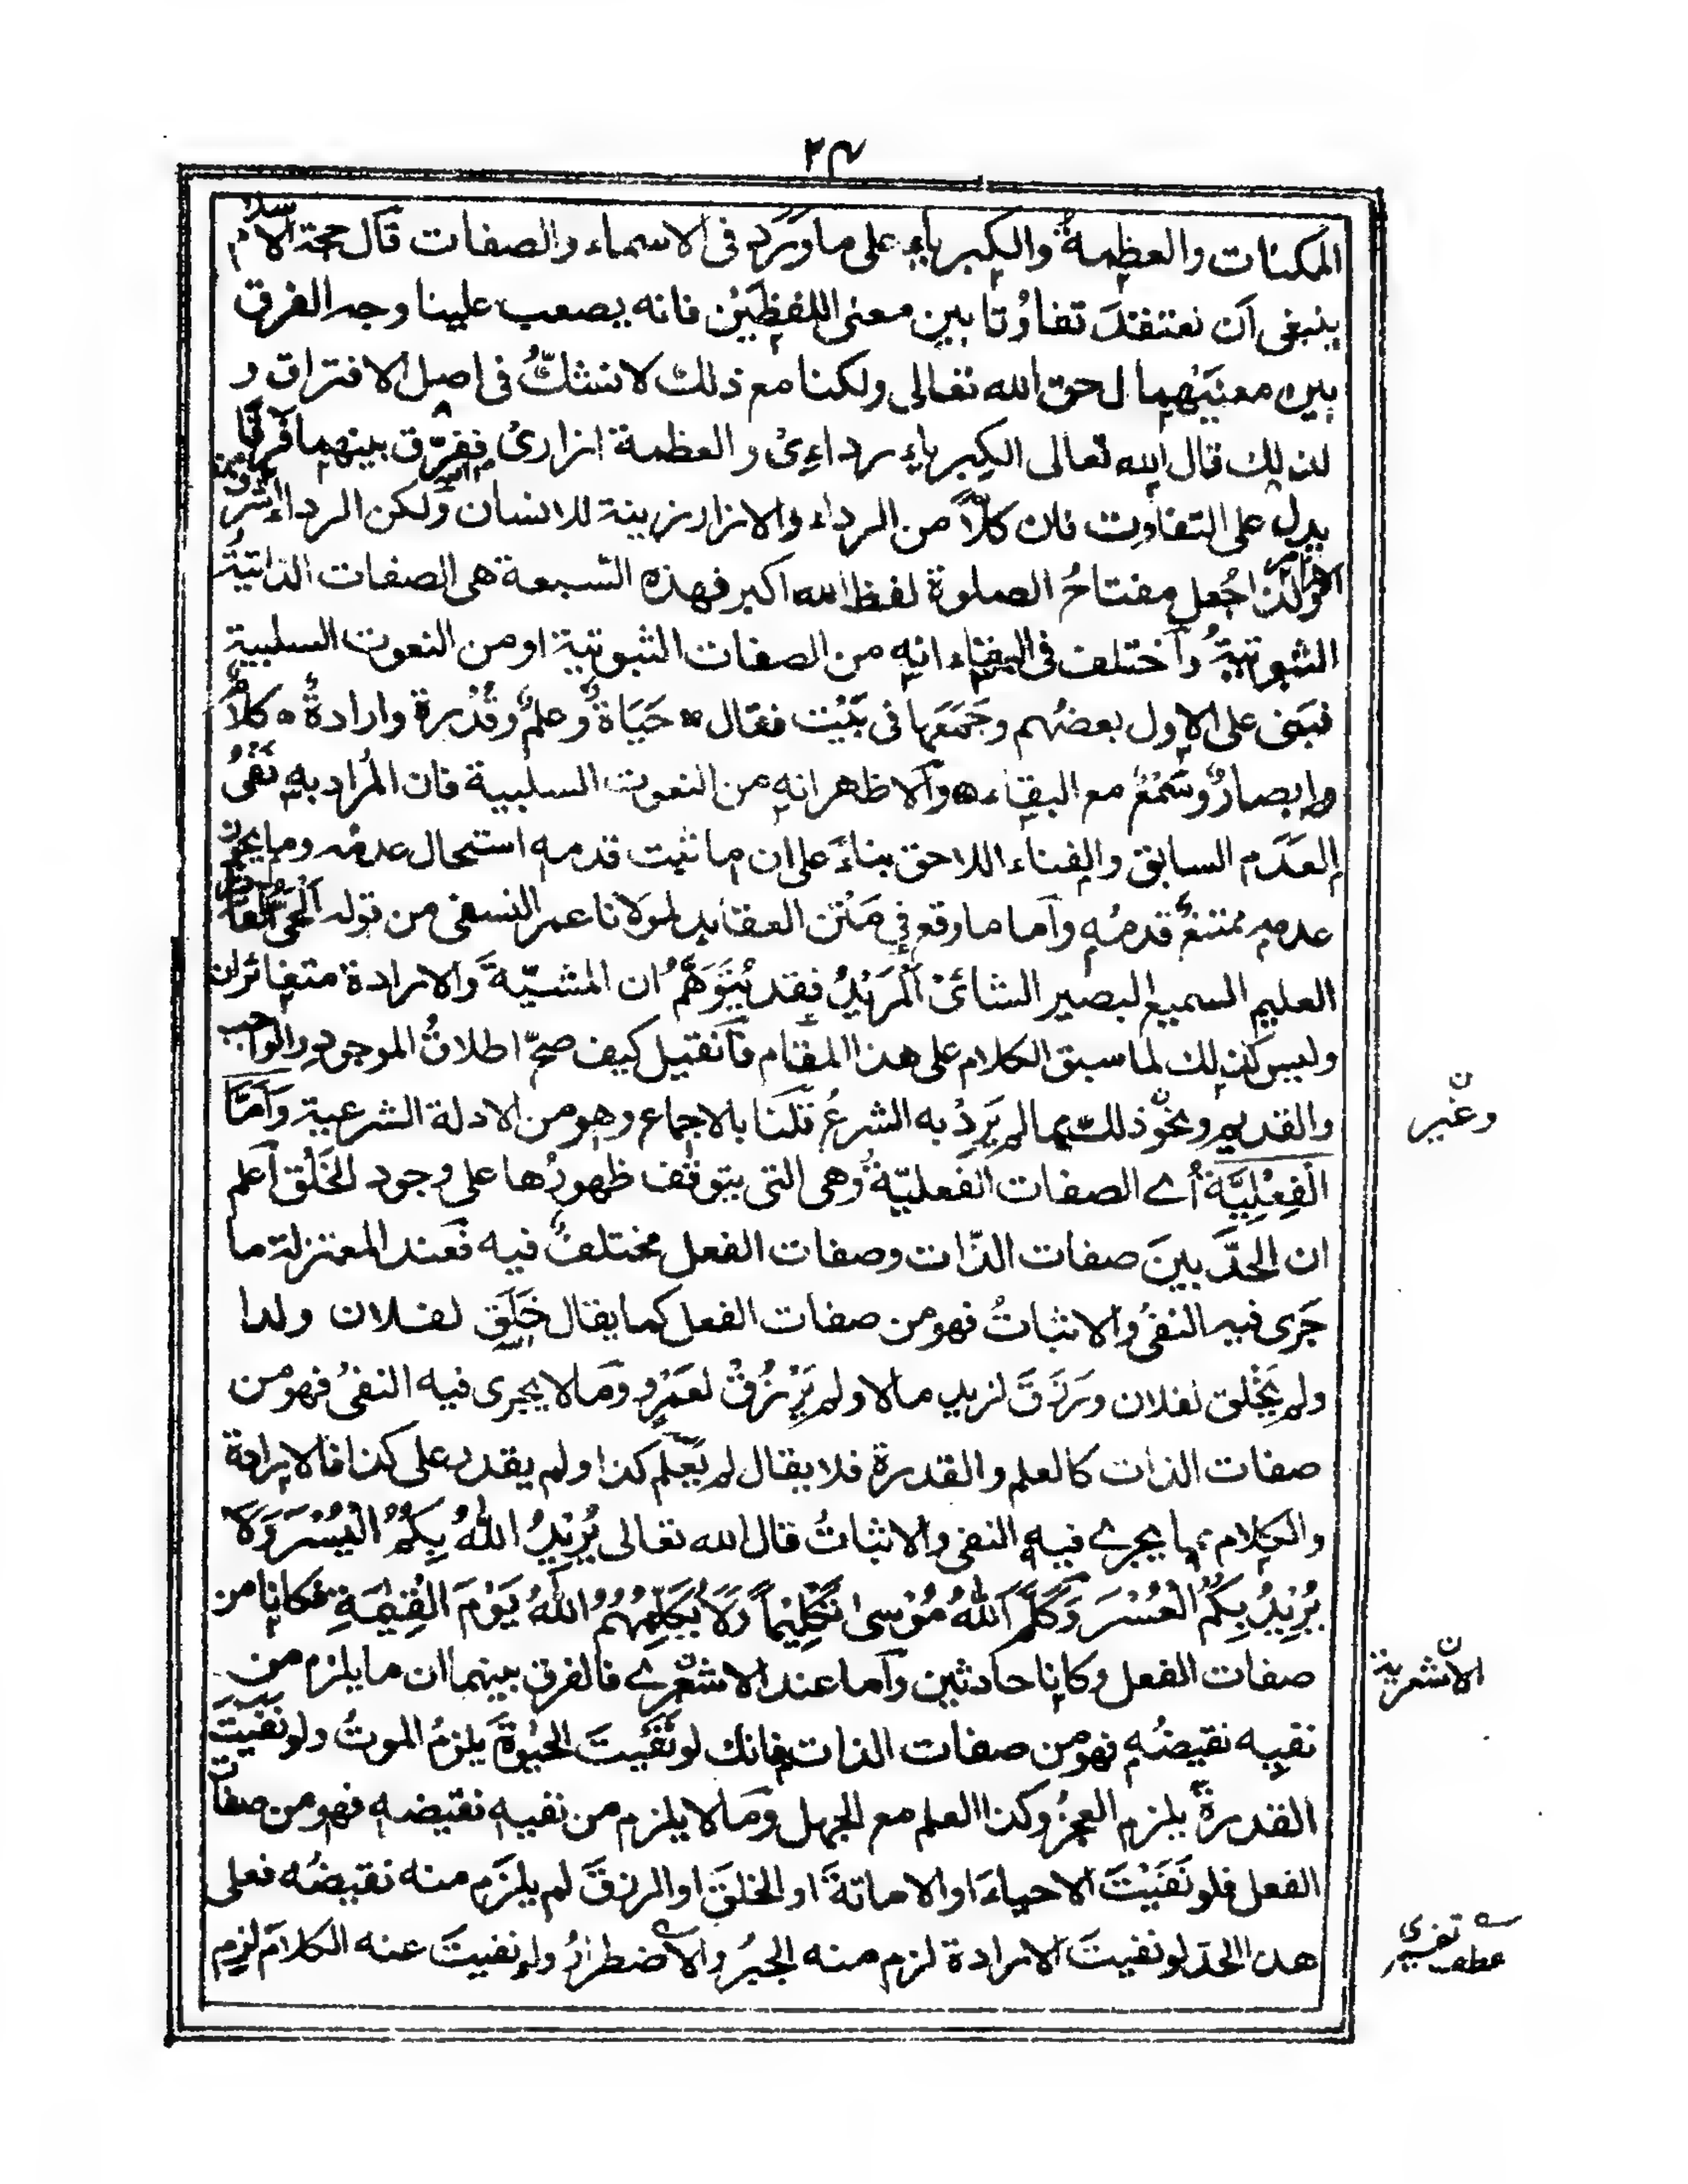 ٢٤
الممكنات والعظمة والكبرياء على ما ورد في الاسماء والصفات قال حجة الاسلام
ينبغي ان نعتقد تفاوتا بين معنى اللفظين فانه يصعب علينا وجه الفرق
بين معنييهما في حق الله تعالى ولكنا مع ذلك لا نشك في اصل الافتراق و
لذلك قال الله تعالى الكبرياء ردائي والعظمة ازاري ففرق بينهما فرقا
يدل على التفاوت فان كلا من الرداء والازار زينة للانسان ولكن الرداء اشرف من
الازار ولذا جعل مفتاح الصلوة لفظ الله اكبر فهذه السبعة هي الصفات الذاتية
الثبوتية واختلف في البقاء انه من الصفات الثبوتية او من النعوت السلبية
فبنى على الاول بعضهم وجمعها في بيت فقال حَيَاةٌ وعلمٌ وقُدْرة وارادةٌ كلامٌ
وابصارٌ وسَمْعٌ مع البقاء والاظهر انه من النعوت السلبية فان المراد به نَفْيُ
العَدَم السابق والفناء اللاحق بناءً على ان ما ثبت قدمه استحال عدمه وما يجوز
عدمه ممتنعٌ قدمُه واما ما وقع في مَتْن العقايد لمولانا عمر النسفي من قوله الحي القادر
العليم السميع البصير الشائئ المريد فقد يُتَوَهَّمُ ان المشيّةَ والارادة متغائران
وليس كذلك لما سبق الكلام على هذا المقام فان قيل كيف صحّ اطلاقُ الموجود والواجب
والقديم ونحو ذلك مما لم يَرِدْ به الشرعُ قلنا بالاجماع وهو من الادلة الشرعية وَاَمّا
الْفِعْلِيَّة اي الصفات الفعليّة وهي التي يتوقف ظهورُها على وجود الخَلْق اعلم
ان الحدَّ بينَ صفات الذّات وصفات الفعل مختلفٌ فيه فعند المعتزلة ما
جَرَى فيه النفيُ والاثباتُ فهو من صفات الفعل كما يقال خَلَقَ لفلان ولدا
ولم يَخْلق لفلان ورَزَقَ لزيد مالا ولم يَرْزُقْ لعَمْرو وما لا يجرى فيه النفيُ فهو من
صفات الذات كالعلم والقدرة فلا يقال لم يَعْلم كذا ولم يقدر على كذا فالارادة
والكلام مما يجري فيه النفي والاثباتُ قال الله تعالى يُرِيدُ اللهُ بِكُمُ الْيُسْرَ وَلَا
يُرِيدُ بِكُمُ الْعُسْرَ وَكَلَّمَ اللهُ مُوْسىٰ تَكْلِيْماً وَلَا يُكَلِّمُهُمُ اللهُ يَوْمَ الْقِيٰمَةِ فكانا من
صفات الفعل وكانا حادثين واما عند الاشعري فالفرق بينهما ان ما يلزم من
نفيه نقيضُه فهو من صفات الذات فانك لو نَفَيتَ الحيوةَ يلزمُ الموتُ ولو نَفَيْتَ
القدرةَ يلزم العجزُ وكذا العلم مع الجهل وما لا يلزم من نفيه نقيضه فهو من صفات
الفعل فلو نَفَيْتَ الاحياءَ او الاماتةَ او الخلقَ او الرزقَ لم يلزم منه نقيضُه فعلى
هذا الحد لو نفيتَ الارادة لزم منه الجبرُ والاضطرارُ ولو نفيتَ عنه الكلامَ لزم
ن
وغير
ن
الاشعرية
عطف تفسيرى